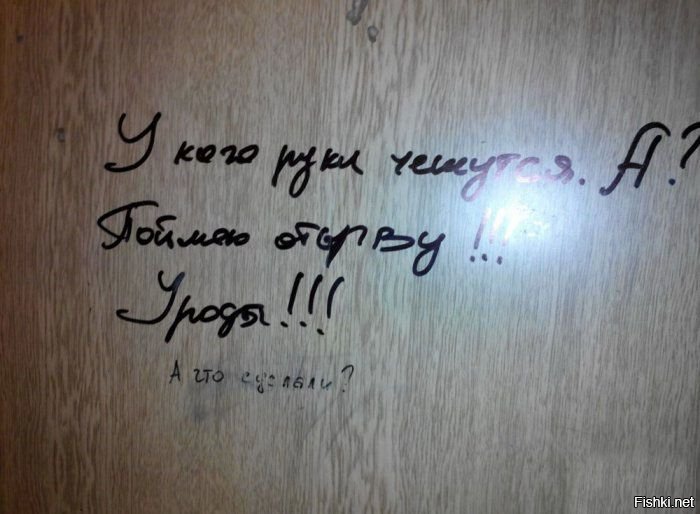 У кого руки чешутся. А?
Поймаю оторву!!!
Уроды!!!
А что сделали?
Fishki.net